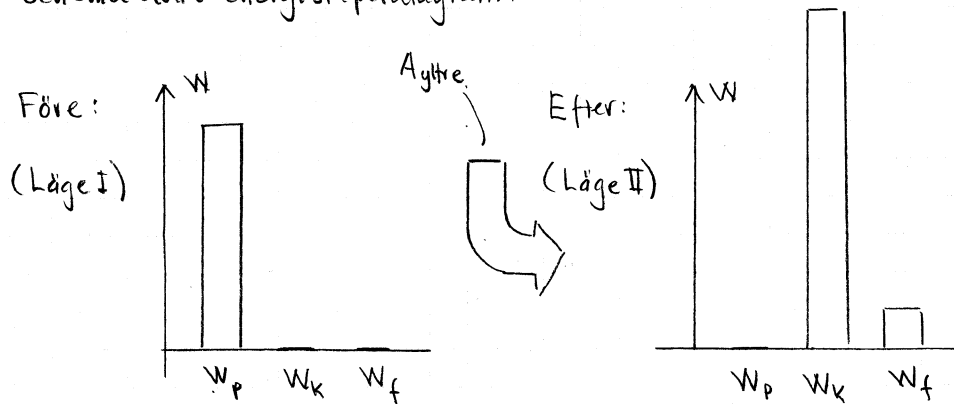 Före:
(Läge I)
W
W_p W_k W_f
A yttre
Efter:
(Läge II)
W
W_p W_k W_f